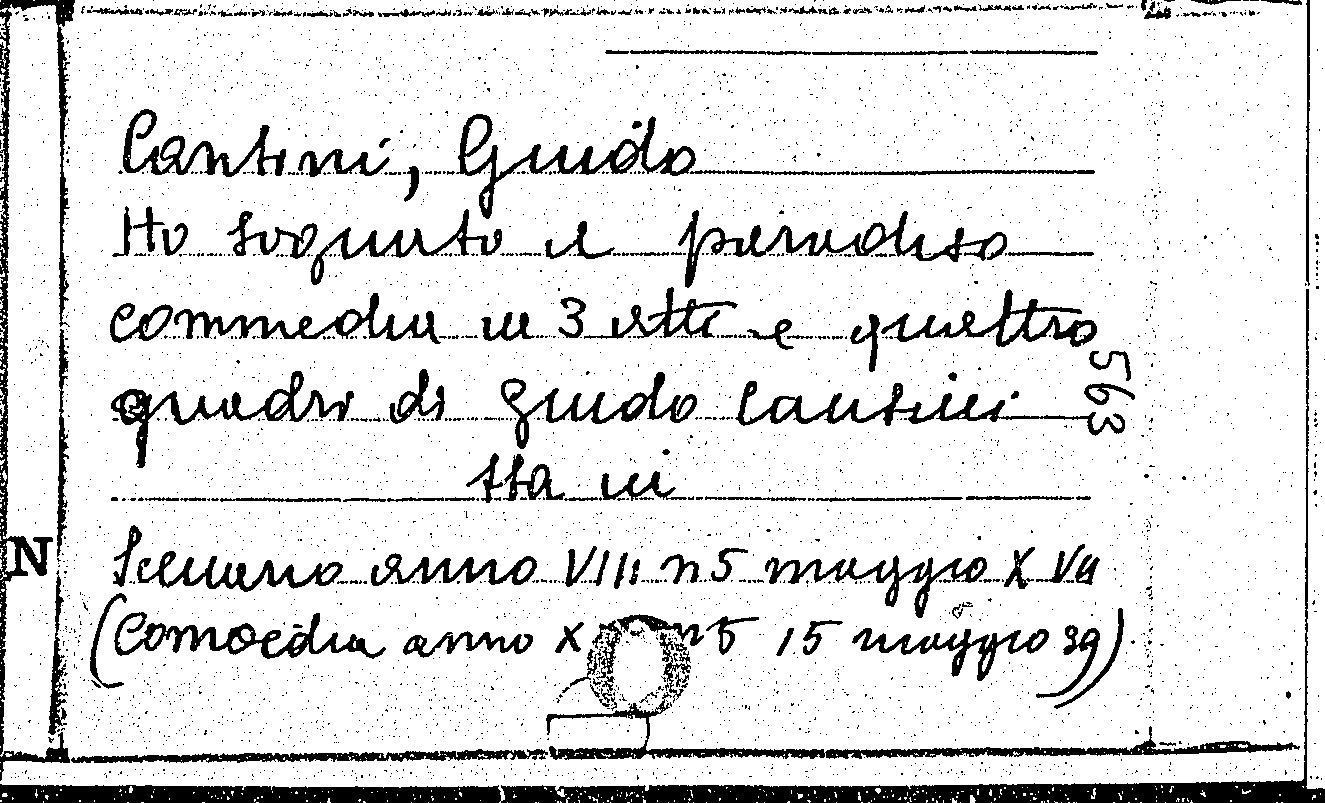 Cantini, Guido
Ho sognato il paradiso
commedia in 3 atti e quattro
quadri di Guido Cantini
sta in
Scenario anno VIII n 5 maggio XVII
(Comoedia anno X n 5 15 maggio 39)
563
N